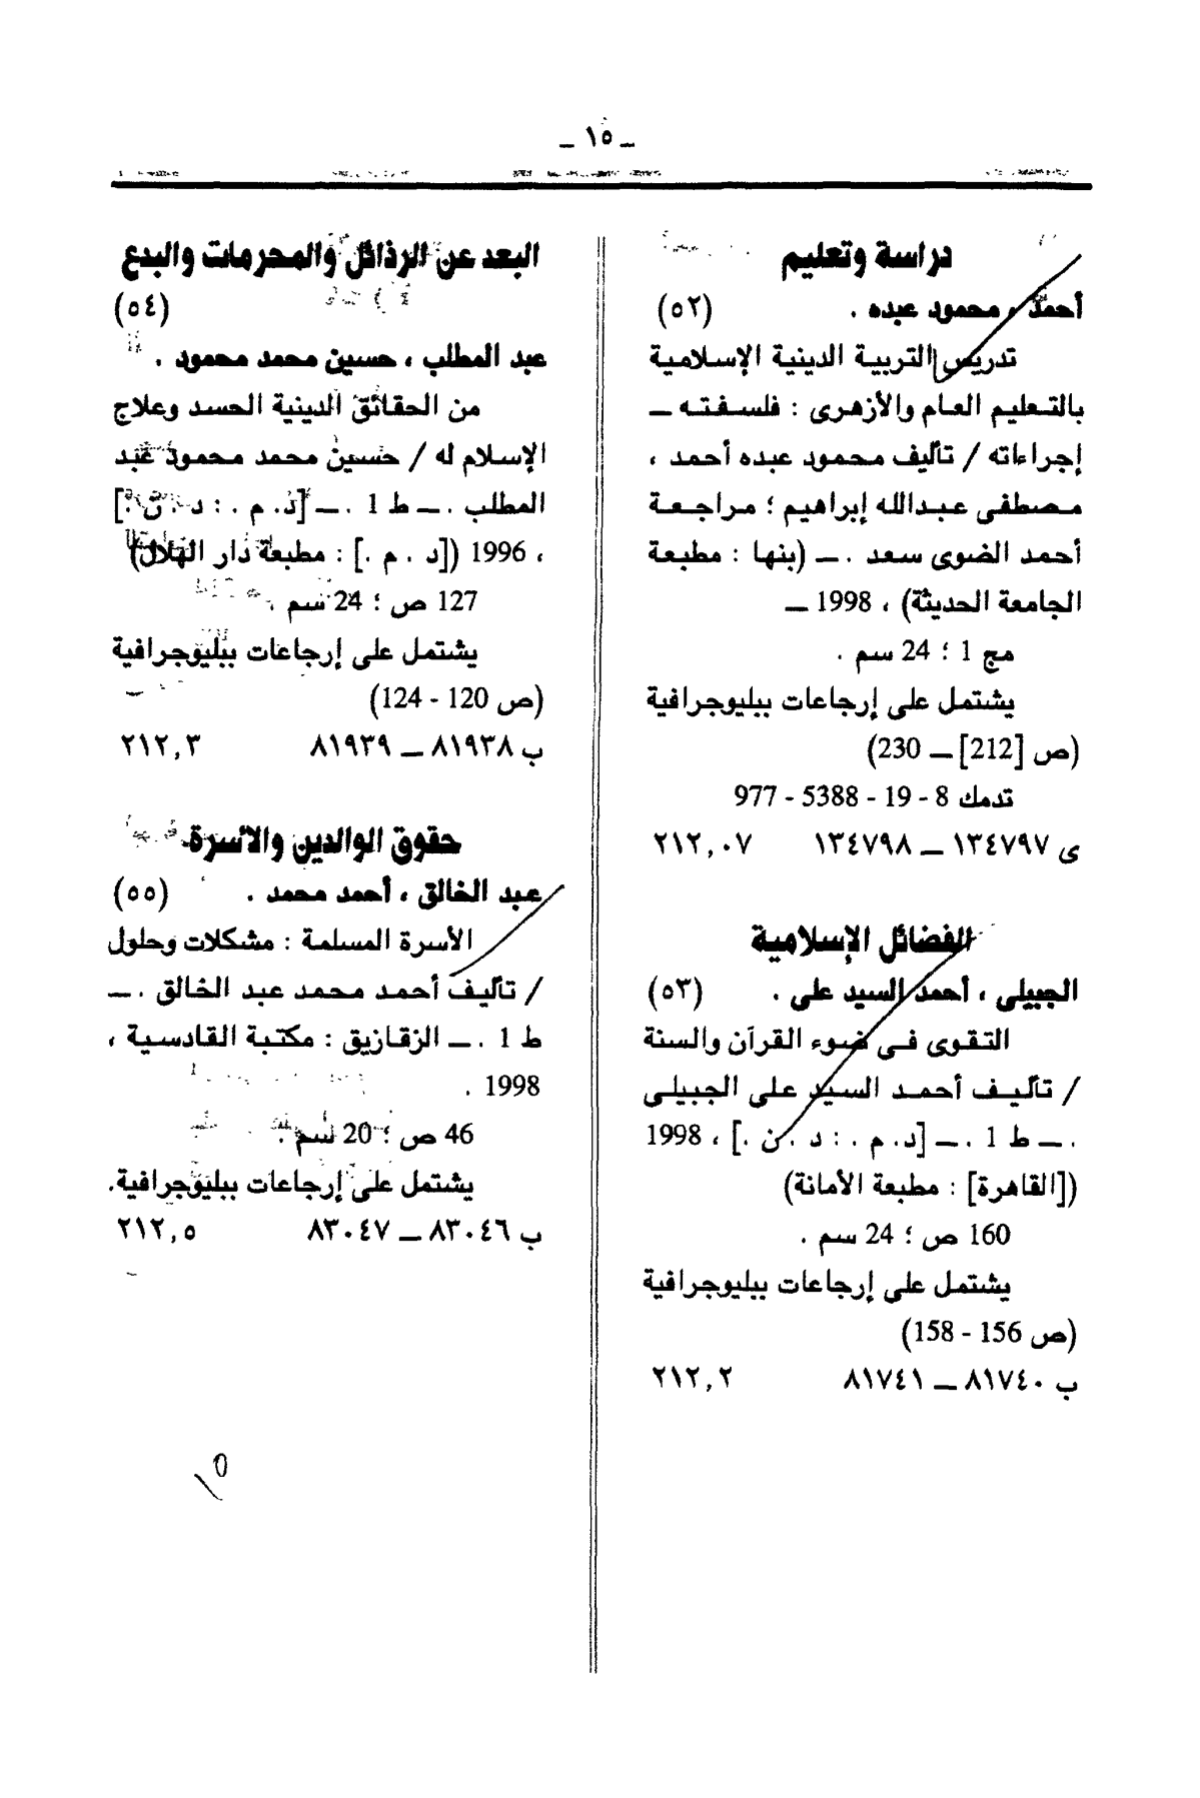 ـ ١٥ ـ
دراسة وتعليم
أحمد ، محمود عبده . (٥٢)
تدريس التربية الدينية الإسلامية
بالتعليم العام والأزهرى : فلسفته ــ
إجراءاته / تأليف محمود عبده أحمد ،
مصطفى عبدالله إبراهيم ؛ مراجعة
أحمد الضوى سعد . ــ (بنها : مطبعة
الجامعة الحديثة) ، 1998 ــ
مج 1 ؛ 24 سم .
يشتمل على إرجاعات ببليوجرافية
(ص [212] ــ 230)
تدمك 8 - 19 - 5388 - 977
ى ١٣٤٧٩٧ ــ ١٣٤٧٩٨ ٢١٢,٠٧
الفضائل الإسلامية
الجبيلى ، أحمد السيد على . (٥٣)
التقوى فى ضوء القرآن والسنة
/ تأليف أحمد السيد على الجبيلى
. ــ ط 1 . ــ [د. م . : د . ن .] ، 1998
([القاهرة] : مطبعة الأمانة)
160 ص ؛ 24 سم .
يشتمل على إرجاعات ببليوجرافية
(ص 156 - 158)
ب ٨١٧٤٠ ــ ٨١٧٤١ ٢١٢,٢
البعد عن الرذائل والمحرمات والبدع
(٥٤)
عبد المطلب ، حسين محمد محمود .
من الحقائق الدينية الحسد وعلاج
الإسلام له / حسين محمد محمود عبد
المطلب . ــ ط 1 . ــ [د. م . : د . ن .]
، 1996 ([د . م .] : مطبعة دار الهلال)
127 ص ؛ 24 سم .
يشتمل على إرجاعات ببليوجرافية
(ص 120 - 124)
ب ٨١٩٣٨ ــ ٨١٩٣٩ ٢١٢,٣
حقوق الوالدين والأسرة
عبد الخالق ، أحمد محمد . (٥٥)
الأسرة المسلمة : مشكلات وحلول
/ تأليف أحمد محمد عبد الخالق . ــ
ط 1 . ــ الزقازيق : مكتبة القادسية ،
1998 .
46 ص ؛ 20 سم .
يشتمل على إرجاعات ببليوجرافية.
ب ٨٣٠٤٦ ــ ٨٣٠٤٧ ٢١٢,٥
١٥